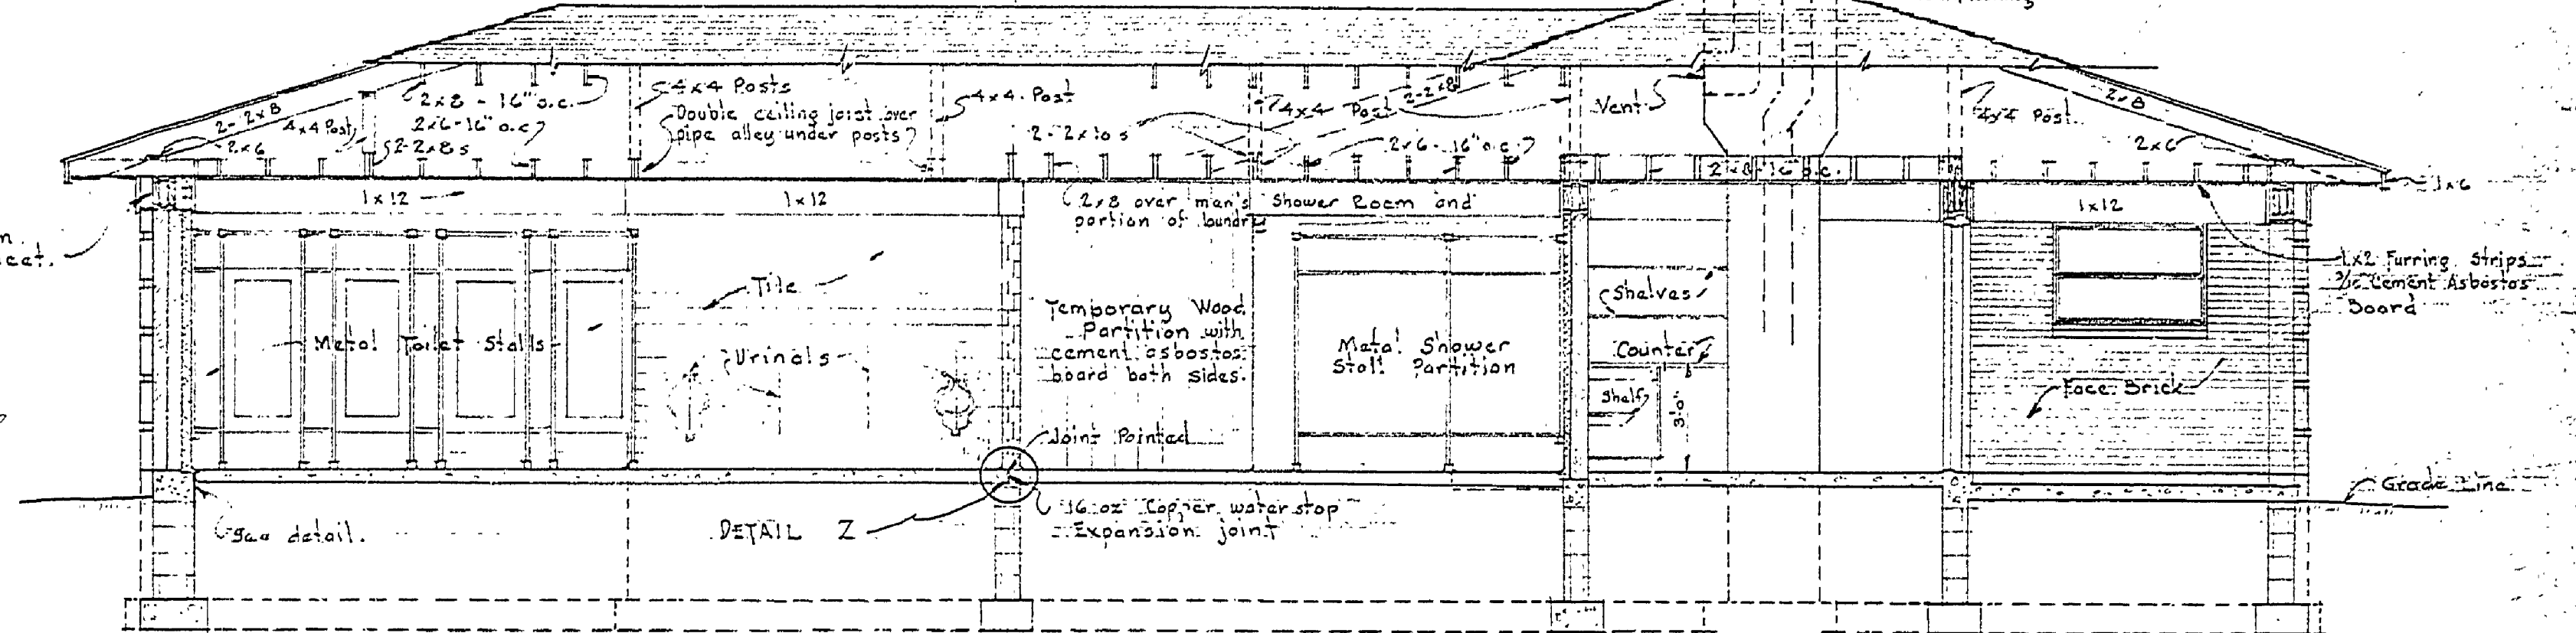 2x8 - 16" o.c.
2x6-16" o.c.
2-2x8
4x4 Post
2x6
2-2x8s
4x4 Posts
Double ceiling joist over
pipe alley under posts
4x4 Post
2-2x10s
4x4 Post
2-2x8
2x6-16" o.c.
Vent
2x8-16" o.c.
4x4 Post
2x8
2x6
1x6
1x12
1x12
2x8 over men's Shower Room and
portion of laundry
1x12
1x2 Furring Strips
Cement Asbestos
Board
Tile
Metal Toilet Stalls
Urinals
Temporary Wood
Partition with
cement asbestos
board both sides.
Metal Shower
Stall Partition
Shelves
Counter
Shelf
3'-0"
Face Brick
Joint Pointed
Grade Line
See detail.
DETAIL Z
16 oz Copper water stop
Expansion joint